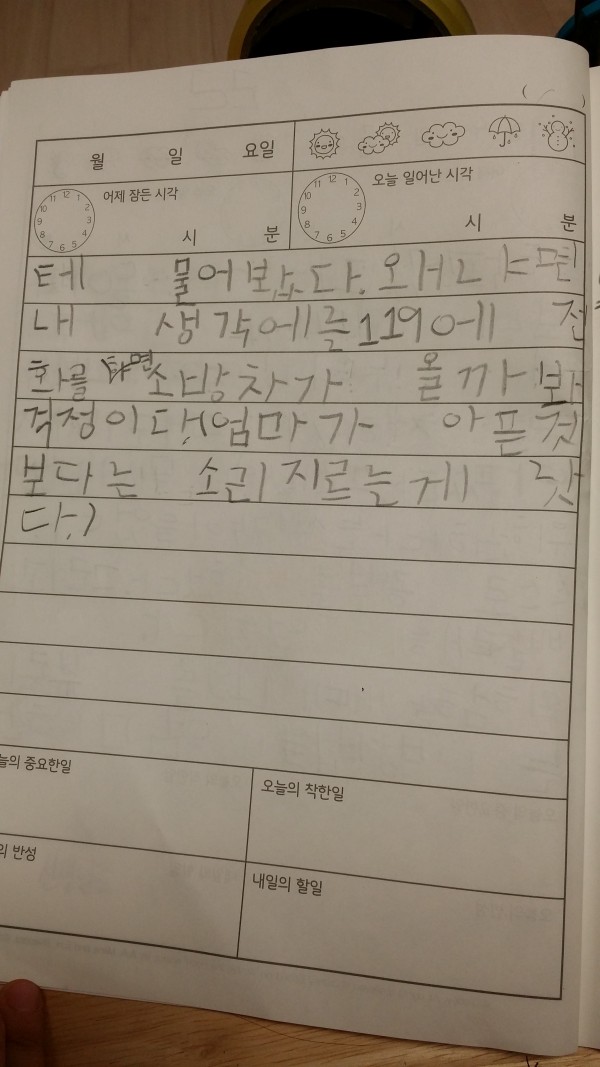 월 일 요일
어제 잠든 시각
시 분
오늘 일어난 시각
시 분
테 물어봤다. 왜냐면
내 생각에를 119에 전
화를 하면 소방차가 올까 봐
걱정이다.(엄마가 아픈것
보다는 소리지르는게 낫
다.)
늘의 중요한일
오늘의 착한일
의 반성
내일의 할일